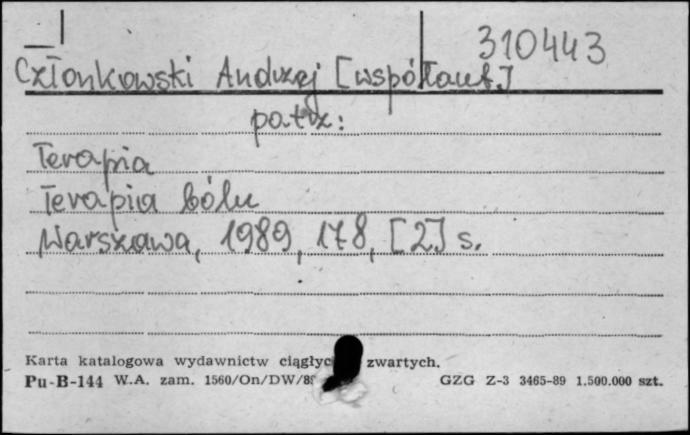 310443
Człankowski Andrzej [współaut.]
patrz:
Terapia
Terapia bólu
Warszawa, 1989, 178, [2] s.
Karta katalogowa wydawnictw zwartych.
Pu-B-144 W.A. zam. 1560/On/DW/ GZG Z-3 3465-89 1.500.000 szt.